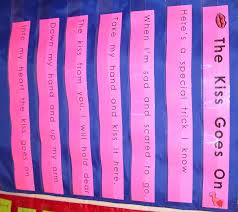 The Kiss Goes On
Here's a special trick I know
When I'm sad and scared to go.
Take my hand and kiss it here.
The kiss from you I will hold dear.
Down my hand and up my arm
Into my heart, the kiss goes on